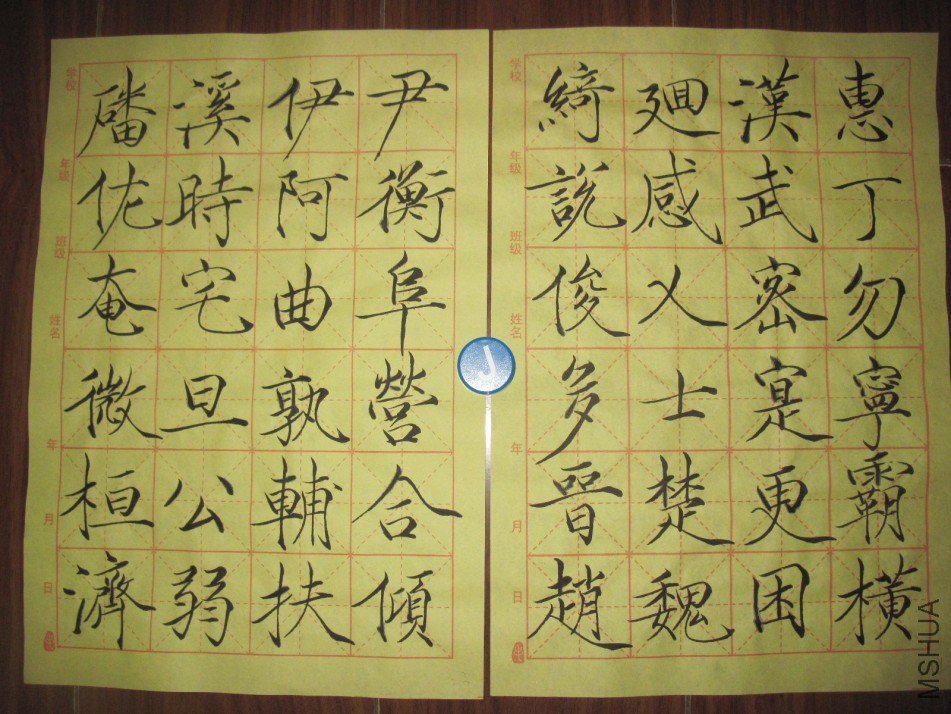 磻溪伊尹
佐時阿衡
奄宅曲阜
微旦孰營
桓公輔合
濟弱扶傾
学校
年级
班级
姓名
年
月
日
綺廻漢惠
說感武丁
俊乂密勿
多士寔寧
晉楚更霸
趙魏困橫
学校
年级
班级
姓名
年
月
日
MSHUA